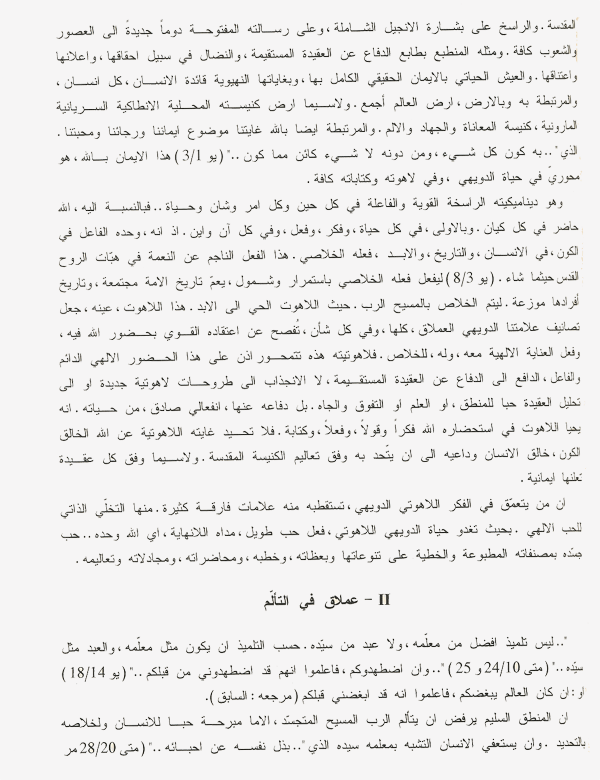 المقدسة. والراسخ على بشارة الانجيل الشاملة، وعلى رسالته المفتوحة دوماً جديدةً الى العصور
والشعوب كافة. ومثله المنطبع بطابع الدفاع عن العقيدة المستقيمة، والنضال في سبيل احقاقها، واعلانها
واعتناقها. والعيش الحياتي بالايمان الحقيقي الكامل بها، وبغاياتها النهيوية قائدة الانسان، كل انسان،
والمرتبطة به وبالارض، ارض العالم أجمع. ولاسيما ارض كنيسته المحلية الانطاكية السريانية
المارونية، كنيسة المعاناة والجهاد والالم. والمرتبطة ايضا بالله غايتنا موضوع ايماننا ورجائنا ومحبتنا.
الذي "..به كون كل شيء، ومن دونه لا شيء كائن مما كون.." (يو 3/1) هذا الايمان بالله، هو
محوريّ في حياة الدويهي، وفي لاهوته وكتاباته كافة.
وهو ديناميكيته الراسخة القوية والفاعلة في كل حين وكل امر وشان وحياة.. فبالنسبة اليه، الله
حاضر في كل كيان. وبالاولى، في كل حياة، وفكر، وفعل، وفي كل أن واين. اذ انه، وحده الفاعل في
الكون، في الانسان، والتاريخ، والابد، فعله الخلاصي. هذا الفعل الناجم عن النعمة في هبّات الروح
القدس حيثما شاء. (يو 8/3) ليفعل فعله الخلاصي باستمرار وشمول، يعمّ تاريخ الامة مجتمعة، وتاريخ
أفرادها موزعة. ليتم الخلاص بالمسيح الرب. حيث اللاهوت الحي الى الابد. هذا اللاهوت، عينه، جعل
تصانيف علامتنا الدويهي العملاق، كلها، وفي كل شأن، تُفصح عن اعتقاده القوي بحضور الله فيه،
وفعل العناية الالهية معه، وله، للخلاص. فلاهوتيته هذه تتمحور اذن على هذا الحضور الالهي الدائم
والفاعل، الدافع الى الدفاع عن العقيدة المستقيمة، لا الانجذاب الى طروحات لاهوتية جديدة او الى
تحليل العقيدة حبا للمنطق، او العلم او التفوق والجاه. بل دفاعه عنها، انفعالي صادق، من حياته. انه
يحيا اللاهوت في استحضاره الله فكراً وقولاً، وفعلاً، وكتابة. فلا تحيد غايته اللاهوتية عن الله الخالق
الكون، خالق الانسان وداعيه الى ان يتّحد به وفق تعاليم الكنيسة المقدسة. ولاسيما وفق كل عقيدة
تعلنها ايمانية.
ان من يتعمّق في الفكر اللاهوتي الدويهي، تستقطبه منه علامات فارقة كثيرة. منها التخلّي الذاتي
للحب الالهي. بحيث تغدو حياة الدويهي اللاهوتي، فعل حب طويل، مداه اللانهاية، اي الله وحده.. حب
جسّده بمصنفاته المطبوعة والخطية على تنوعاتها وبعظاته، وخطبه، ومحاضراته، ومجادلاته وتعاليمه.
II - عملاق في التألّم
"..ليس تلميذ افضل من معلّمه، ولا عبد من سيّده. حسب التلميذ ان يكون مثل معلّمه، والعبد مثل
سيّده.." (متى 24/10 و 25) "..وان اضطهدوكم، فاعلموا انهم قد اضطهدوني من قبلكم.." (يو 18/14)
او: ان كان العالم يبغضكم، فاعلموا انه قد ابغضني قبلكم (مرجعه: السابق).
ان المنطق السليم يرفض ان يتألم الرب المسيح المتجسّد، الاما مبرحة حبا للانسان ولخلاصه
بالتحديد. وان يستعفي الانسان التشبه بمعلمه سيده الذي "..بذل نفسه عن احبائه.." (متى 28/20 مر